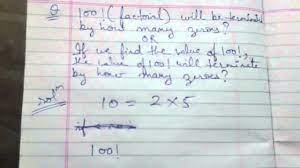 Q 100! (factorial) will be terminate
by how many zeros?
OR
If we find the value of 100!,
the value of 100! will terminate
by how many zeroes?
Solⁿ
10 = 2×5
100!